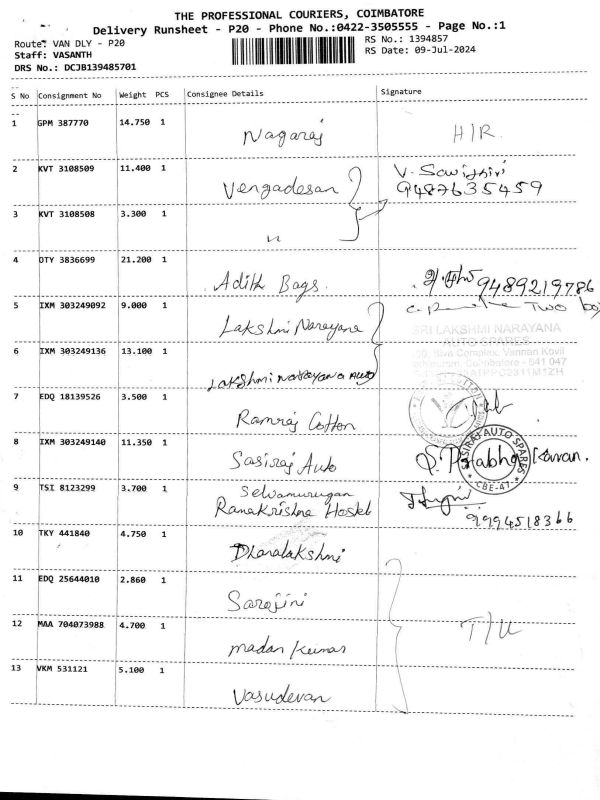 THE PROFESSIONAL COURIERS, COIMBATORE
Delivery Runsheet - P20 - Phone No.:0422-3505555 - Page No.:1
Route: VAN DLY - P20 RS No.: 1394857
Staff: VASANTH RS Date: 09-Jul-2024
DRS No.: DCJB139485701
S No Consignment No Weight PCS Consignee Details Signature
1 GPM 387770 14.750 1 Nagaraj H/R
2 KVT 3108509 11.400 1 Vengadesan V. 9487635459
3 KVT 3108508 3.300 1 "
4 OTY 3836699 21.200 1 Adith Bags. 9489219786
5 IXM 303249092 9.000 1 Lakshmi Narayana TWO box
SRI LAKSHMI NARAYANA
AUTO SPARES
Siva Complex, Vannan Kovil
Coimbatore - 641 047
6 IXM 303249136 13.100 1 Lakshmi Narayana Auto
7 EDQ 18139526 3.500 1 Ramraj Cotton
8 IXM 303249140 11.350 1 Sasiraj Auto S. Prabhakaran.
SASIRAJ AUTO SPARES
CBE-47
9 TSI 8123299 3.700 1 Selvamurugan
Ramakrishna Hostel 9994518366
10 TKY 441840 4.750 1 Dhanalakshmi
11 EDQ 25644010 2.860 1 Sarojini
12 MAA 704073988 4.700 1 Madan Kumar T/U
13 VKM 531121 5.100 1 Vasudevan